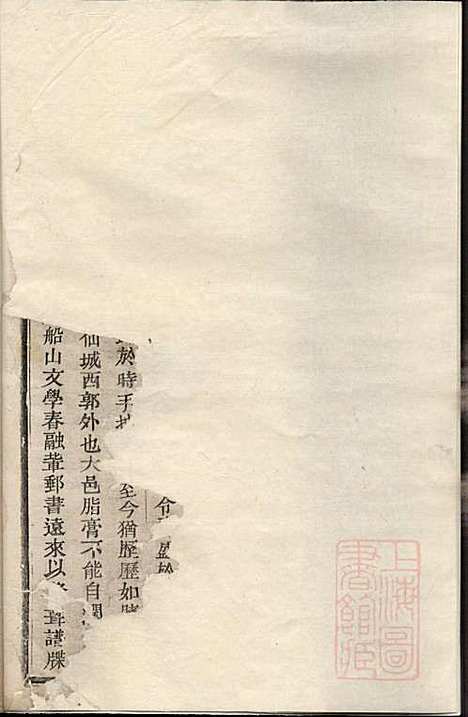 令
於時手
至今猶歷歷如
仙城西郭外也大邑脂膏不能自潤
船山文學春融輩郵書遠來以
譜牒
上海圖書館藏